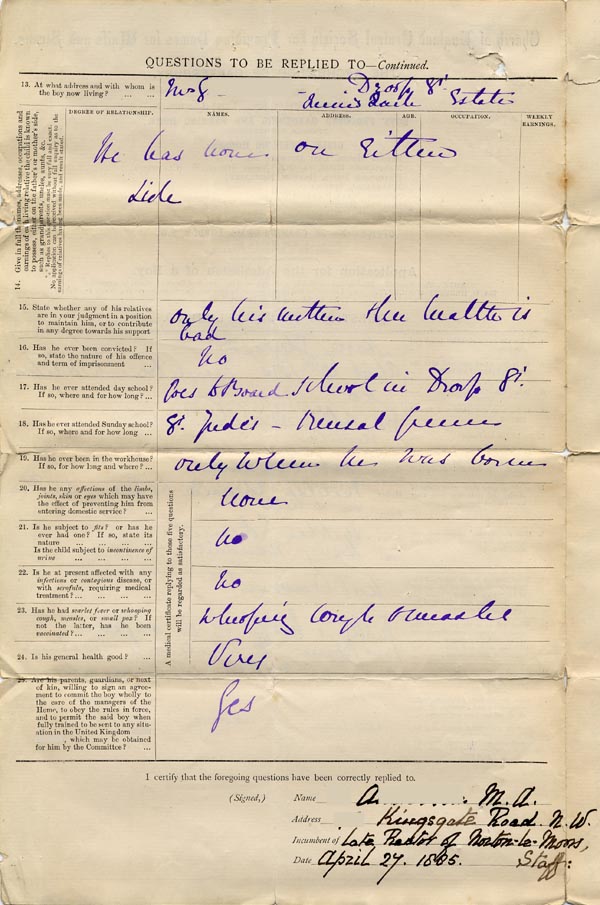 QUESTIONS TO BE REPLIED TO—Continued.
13. At what address and with whom is
the boy now living? ... ...
Droop St
Estate
14. Give in full the names, addresses, occupations and
earnings of each living relative the child is known
to possess, either on the father's or mother's side,
such as grandparents, uncles, aunts, &c.
DEGREE OF RELATIONSHIP. NAMES. ADDRESS. AGE. OCCUPATION. WEEKLY EARNINGS.
He has none on Either
Side
15. State whether any of his relatives
are in your judgment in a position
to maintain him, or to contribute
in any degree towards his support
only his mother & her health is
bad
16. Has he ever been convicted? If
so, state the nature of his offence
and term of imprisonment ...
No
17. Has he ever attended day school?
If so, where and for how long? ...
Goes to Board School in Droop St.
18. Has he ever attended Sunday school?
If so, where and for how long ...
St. Jude's – Kensal Green
19. Has he ever been in the workhouse?
If so, for how long and where? ...
only when he was born
20. Has he any affections of the limbs,
joints, skin or eyes which may have
the effect of preventing him from
entering domestic service? ...
none
21. Is he subject to fits? or has he
ever had one? If so, state its
nature ... ... ... ...
Is the child subject to incontinence of
urine ... ... ... ...
no
22. Is he at present affected with any
infectious or contagious disease, or
with scrofula, requiring medical
treatment? ... ... ...
No
23. Has he had scarlet fever or whooping
cough, measles, or small pox? If
not the latter, has he been
vaccinated? ... ... ...
whooping cough & measles
24. Is his general health good? ...
Very
A medical certificate replying to these five questions
will be regarded as satisfactory.
25. Are his parents, guardians, or next
of kin, willing to sign an agree-
ment to commit the boy wholly to
the care of the managers of the
Home, to obey the rules in force,
and to permit the said boy when
fully trained to be sent to any situ-
ation in the United Kingdom
, which may be obtained
for him by the Committee? ...
Yes
I certify that the foregoing questions have been correctly replied to.
(Signed,) Name A. M.A.
Address Kingsgate Road. N.W.
Incumbent of Late Rector of Norton-le-Moors,
Date April 27. 1885. Staff: